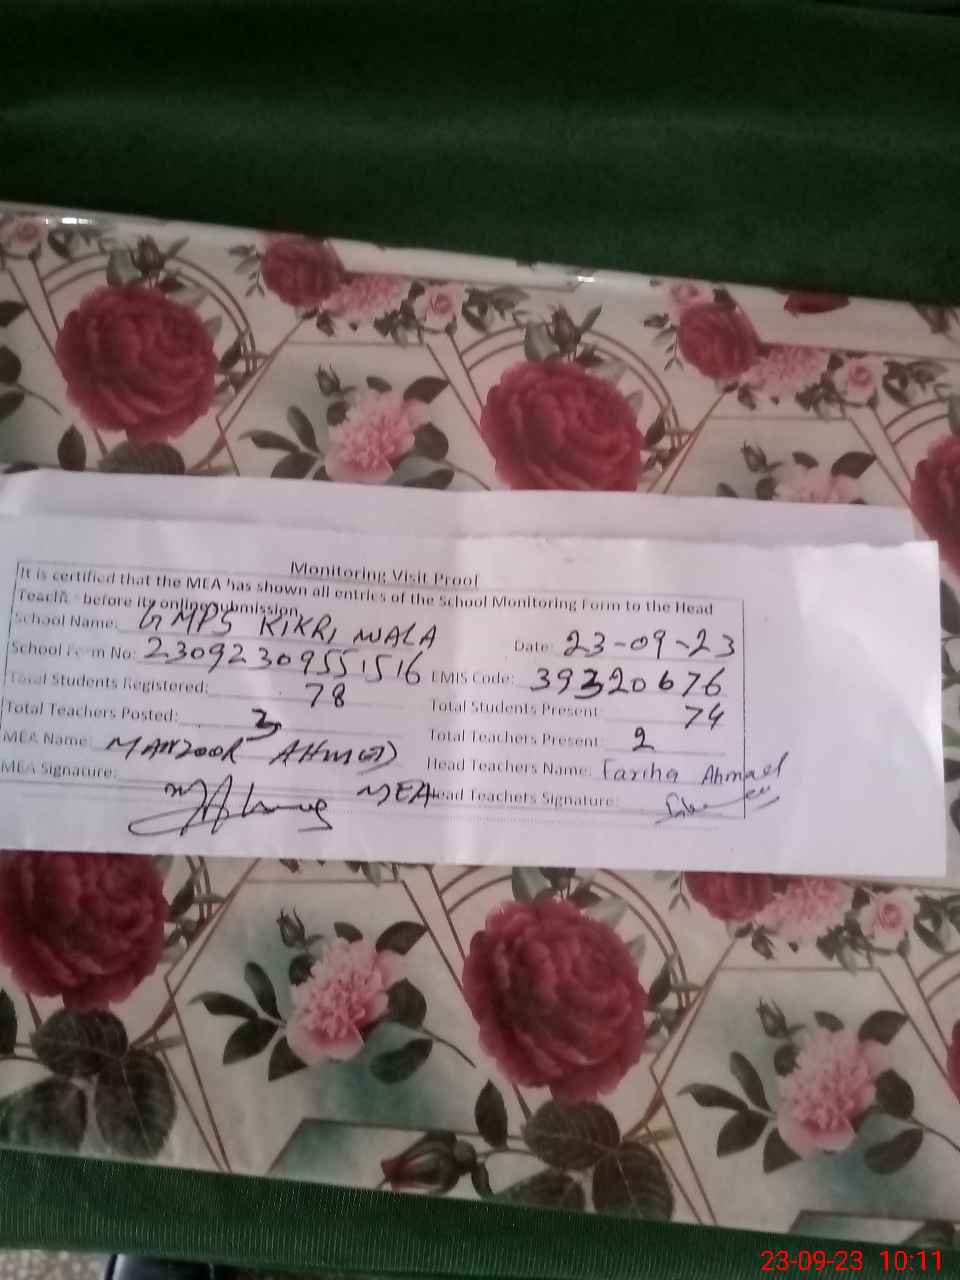 Monitoring Visit Proof
It is certified that the MEA has shown all entries of the School Monitoring Form to the Head
Teacher before its online submission.
School Name: GMPS KIKRI WALA Date: 23-09-23
School Form No: 23092309551516 EMIS Code: 39320676
Total Students Registered: 78 Total Students Present: 74
Total Teachers Posted: 3 Total Teachers Present: 2
MEA Name: MANZOOR AHMED Head Teachers Name: Fariha Ahmad
MEA Signature: MEA Head Teachers Signature:
23-09-23 10:11